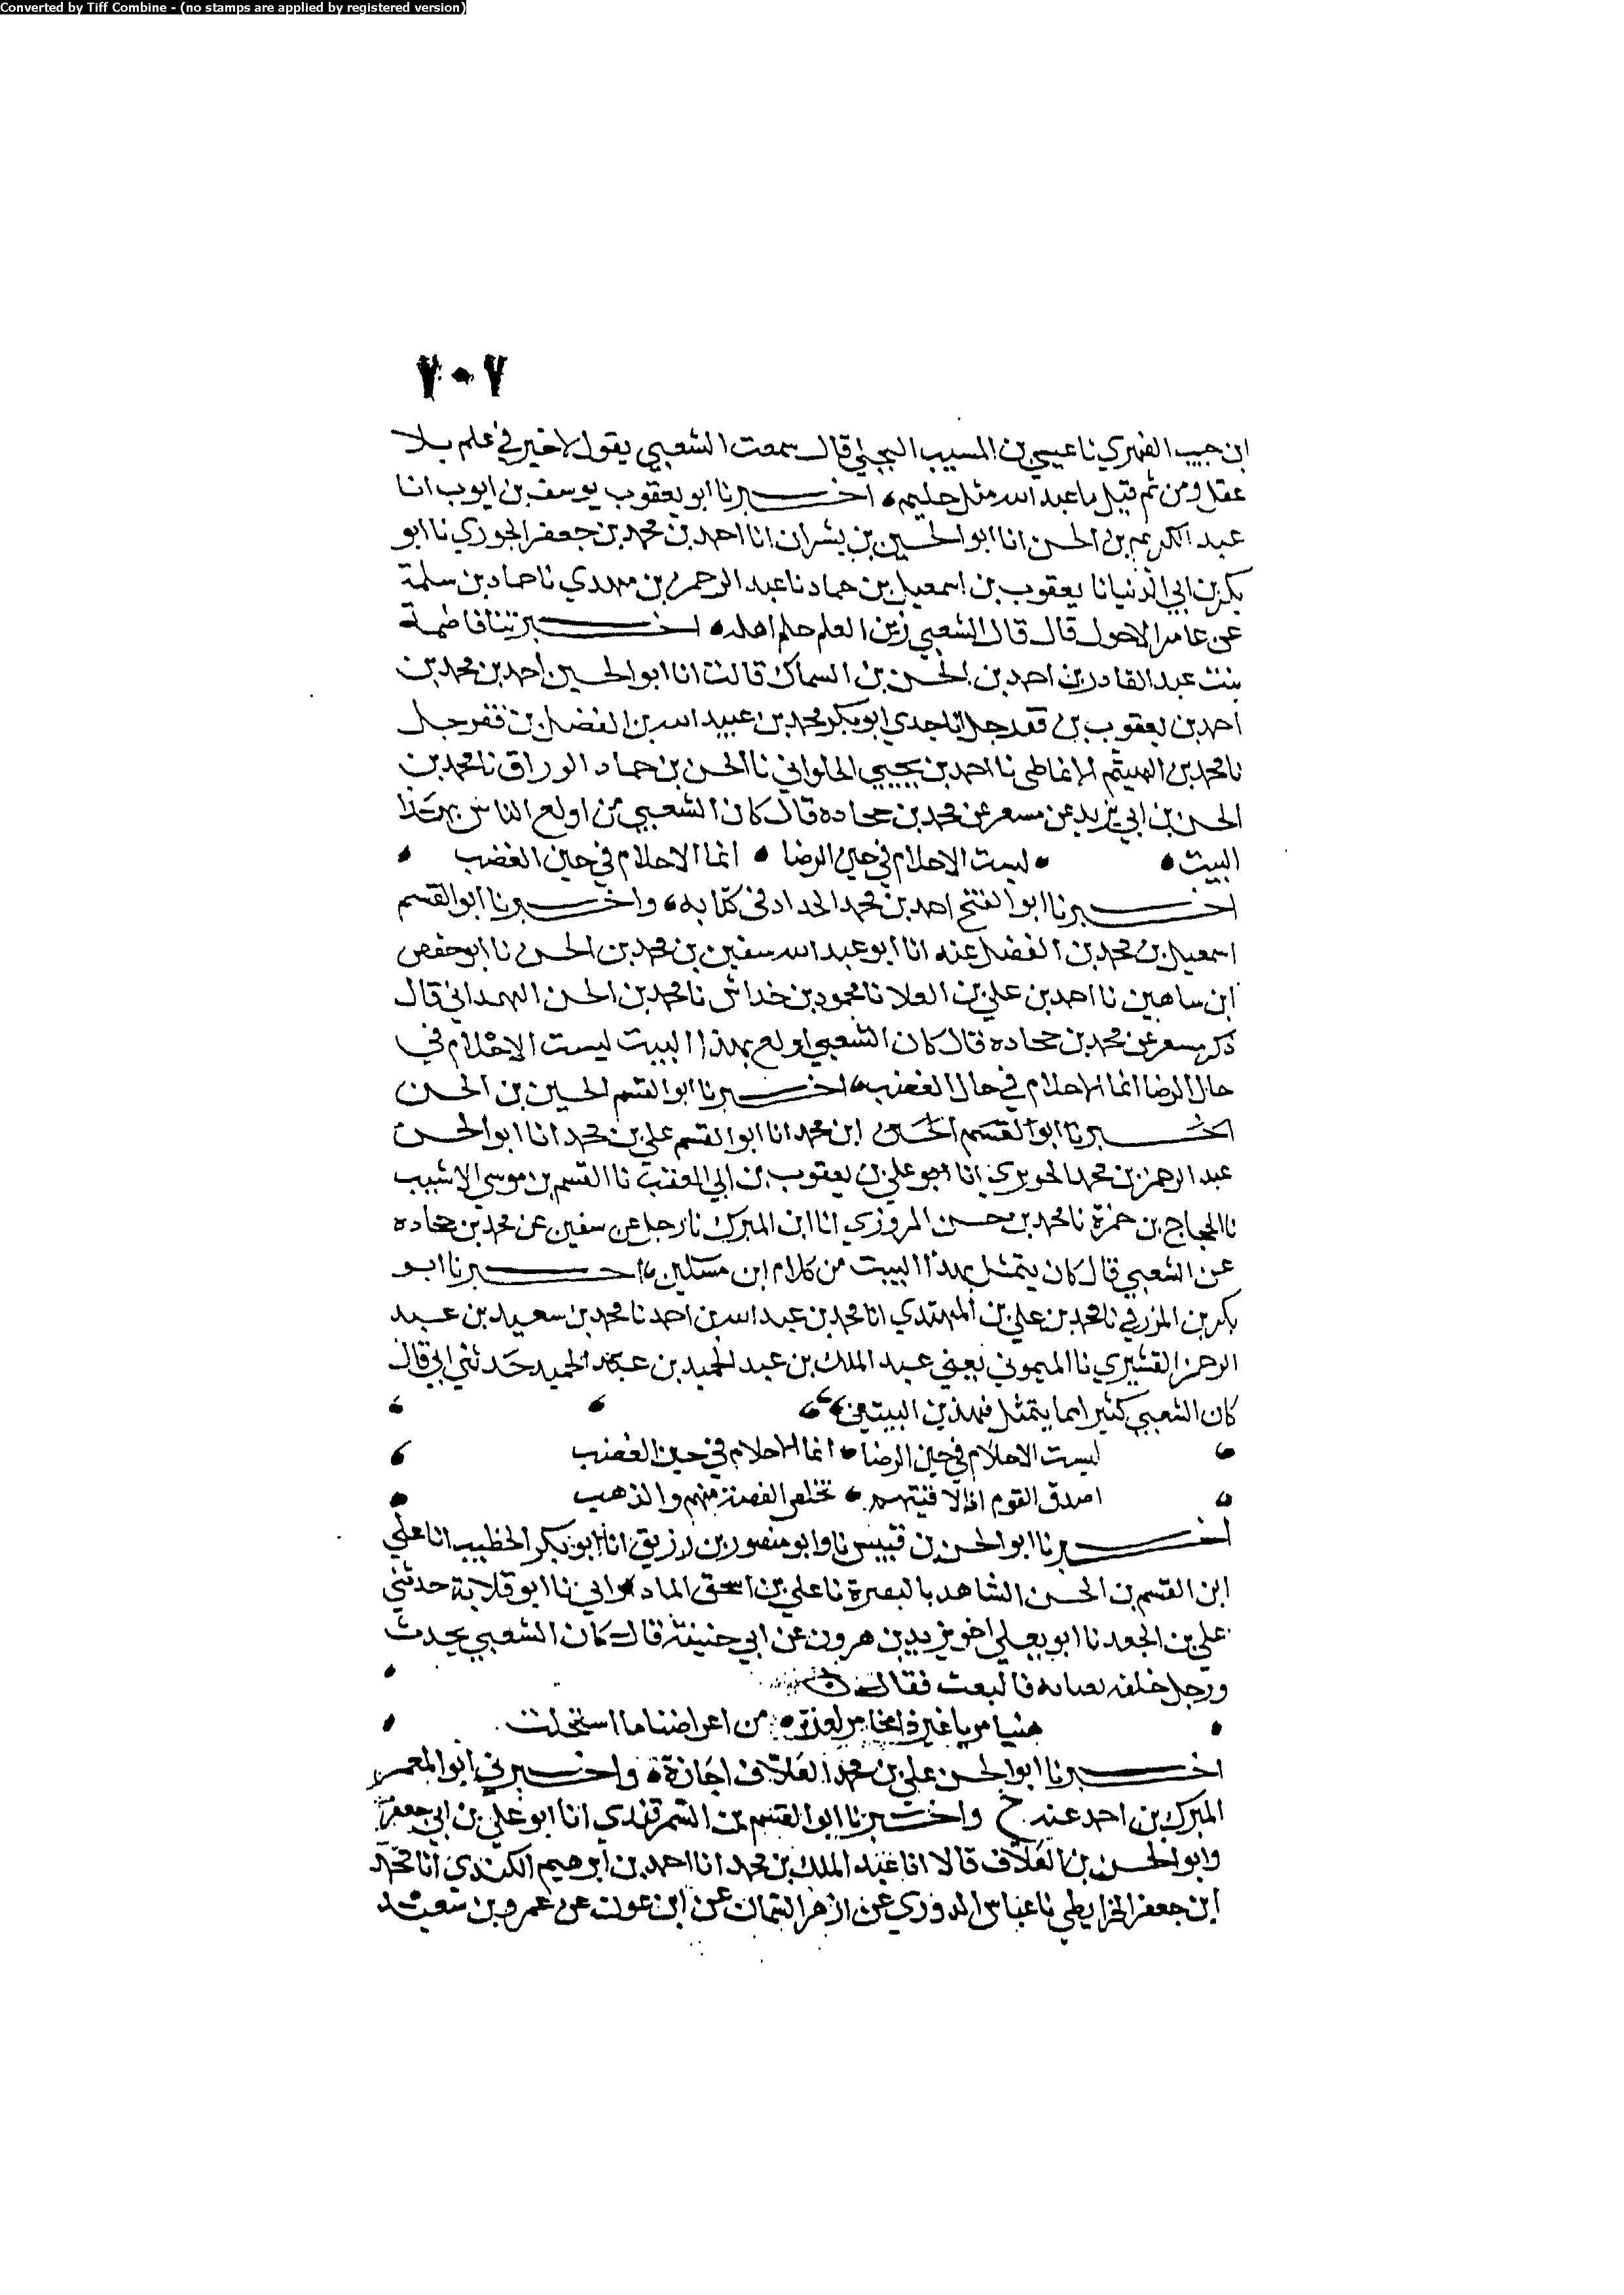 Converted by Tiff Combine - (no stamps are applied by registered version)
٧٠٧
ابن حبيب الفهري نا عيسى بن المسيب البجلي قال سمعت الشعبي يقول لا خير في علم بلا
عقل ومن ثم قيل ما عبد الله مثل حليم اخبرنا ابو يعقوب يوسف بن ايوب انا
عبد الكريم بن الحسن انا ابو الحسين بن بشران انا احمد بن محمد بن جعفر الجوزي نا ابو
بكر بن ابي الدنيا نا يعقوب بن اسمعيل بن حماد نا عبد الرحمن بن مهدي نا حماد بن سلمة
عن عامر الاحول قال قال الشعبي زين العلم حلم اهله اخبرتنا فاطمة
بنت عبد القادر بن احمد بن الحسن بن السماك قالت انا ابو الحسين احمد بن محمد بن
احمد بن يعقوب بن قفرجل نا جدي ابو بكر محمد بن عبيد الله بن الفضل بن قفرجل
نا محمد بن الهيثم الانماطي نا احمد بن يحيى الحلواني نا الحسن بن حماد الوراق نا محمد بن
الحسن بن ابي يزيد عن مسعر عن محمد بن جحاده قال كان الشعبي من اولع الناس بهذا
البيت ليست الاحلام في حين الرضا انما الاحلام في حين الغضب
اخبرنا ابو الفتح احمد بن محمد الحداد في كتابه واخبرنا ابو القسم
اسمعيل بن محمد بن الفضل عنه انا ابو عبد الله سفين بن محمد بن الحسن نا ابو حفص
ابن ساهين نا احمد بن علي بن العلا نا محمود بن خداش نا محمد بن الحسن الهمداني قال
ذكر مسعر عن محمد بن جحاده قال كان الشعبي اولع بهذا البيت ليست الاحلام في
حال الرضا انما الاحلام في حال الغضب اخبرنا ابو القسم الحسين بن الحسن
اخبرنا ابو القسم الحسين ابن محمد انا ابو القسم علي بن محمد انا ابو الحسن
عبد الرحمن بن محمد الحوبري انا ابو علي بن يعقوب بن ابي العقب نا القسم بن موسى الاشيب
نا الحجاج بن حمزة نا محمد بن حسن المروزي انا ابن المبرك نا رجل عن سفين عن محمد بن جحاده
عن الشعبي قال كان يتمثل بهذا البيت من كلام ابن مسكين اخبرنا ابو
بكر بن المزرفي نا محمد بن علي بن المهتدي انا محمد بن عبد الله بن احمد نا محمد بن سعيد بن عبد
الرحمن القشيري نا الميموني يعني عبد الملك بن عبد الحميد بن عبد الحميد حدثني ابي قال
كان الشعبي كثيرا مما يتمثل بهذين البيتين
ليست الاحلام في حين الرضا انما الاحلام في حين الغضب
اصدق القوم اذا لاقيتهم تخلص الفضة منهم والذهب
اخبرنا ابو الحسن بن قبيس نا وابو منصور بن زريق انا ابو بكر الخطيب انا علي
ابن القسم بن الحسن الشاهد بالبصرة نا علي بن اسحق المادراني نا ابو قلابة حدثني
علي بن الجعد نا ابو يعلي اخو يزيد بن هرون عن ابي حنيفة قال كان الشعبي يحدث
ورجل خلفه فالتفت فقال
هنيا مريا غير داء مخامر لعزة من اعراضنا ما استحلت
اخبرنا ابو الحسن علي بن محمد العلاف اجازة واخبرني ابو المعمر
المبرك بن احمد عنه ح واخبرنا ابو القسم بن السمرقندي انا ابو علي بن ابي جعفر
وابو الحسن بن العلاف قالا انا عبد الملك بن محمد انا احمد بن ابرهيم الكندي انا محمد
ابن جعفر الخرايطي نا عباس الدوري عن ازهر السمان عن ابن عون عن عمرو بن سعيد